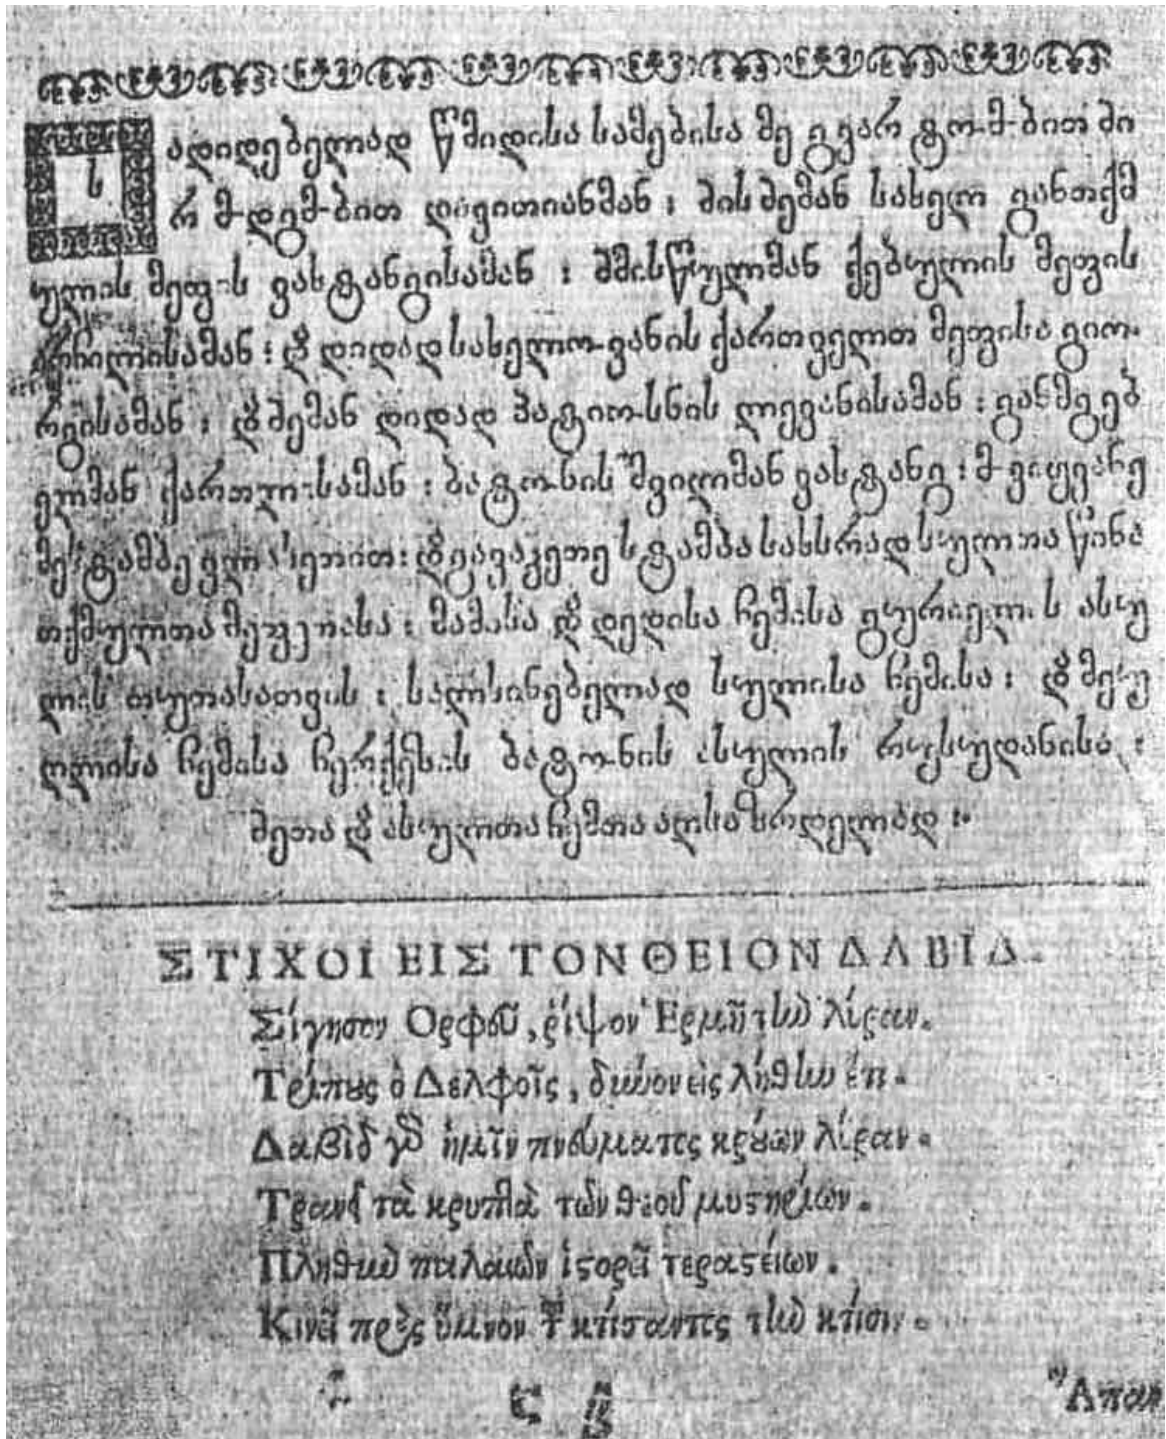 ს ადიდებელად წმიდისა სამებისა მე გვარ ტომობით მი
რონ მდგმობით დავითიანმან : მის ძემან სახელ განთქმ
ულის მეფის ვახტანგისამან : ძმისწულმან ქებულის მეფის
არჩილისამან : დ დიდად სახელოვანის ქართველთ მეფისა გიო
რგისამან : დ ძემან დიდად პატიოსნის ლევანისამან : განმგებ
ელმან ქართლისამან : ბატონის შვილმან ვახტანგ : მოვიყვანე
მესტამბე დ გავაკეთე სტამბა სახსრად სულთა წინა
თქმულთა მეფეთასა : მამისა დ დედისა ჩემისა გურიელის ასუ
ლის თუთასათვის : სალხინებელად სულისა ჩემისა : დ მეუ
ღლისა ჩემისა ჩერქეზის ბატონის ასულის რუსუდანისა :
ძეთა დ ასულთა ჩემთა აღსაზრდელად :
ΣΤΙΧΟΙ ΕΙΣ ΤΟΝ ΘΕΙΟΝ ΔΑΒΙΔ.
Σίγησον Ορφεῦ, ῥίψον Ἑρμῆ τὴν λίραν.
Τρίπους ὁ Δελφοῖς, δύνον εἰς λήθην ἔτι.
Δαβὶδ γὰρ ἡμῖν πνεύματος κρούων λίραν.
Τρανοῖ τὰ κρυπτὰ τῶν θεοῦ μυστηρίων.
Πληθὺν παλαιῶν ἱστορεῖ τεραστείων.
Κινεῖ πρὸς ὕμνον τοῦ κτίσαντος τὴν κτίσιν.
Ἅπαν